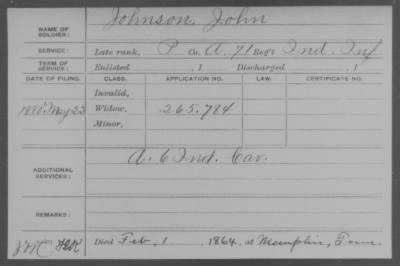 NAME OF SOLDIER: Johnson, John
SERVICE: Late rank, P Co. A, 71 Reg't Ind. Inf
TERM OF SERVICE: Enlisted , 1 Discharged , 1
DATE OF FILING. CLASS. APPLICATION NO. LAW. CERTIFICATE NO.
Invalid,
1880, May 22 Widow, 265,784
Minor,
ADDITIONAL SERVICES: A. 6 Ind. Cav.
REMARKS:
Died Feb. 1, 1864, at Memphis, Tenn.